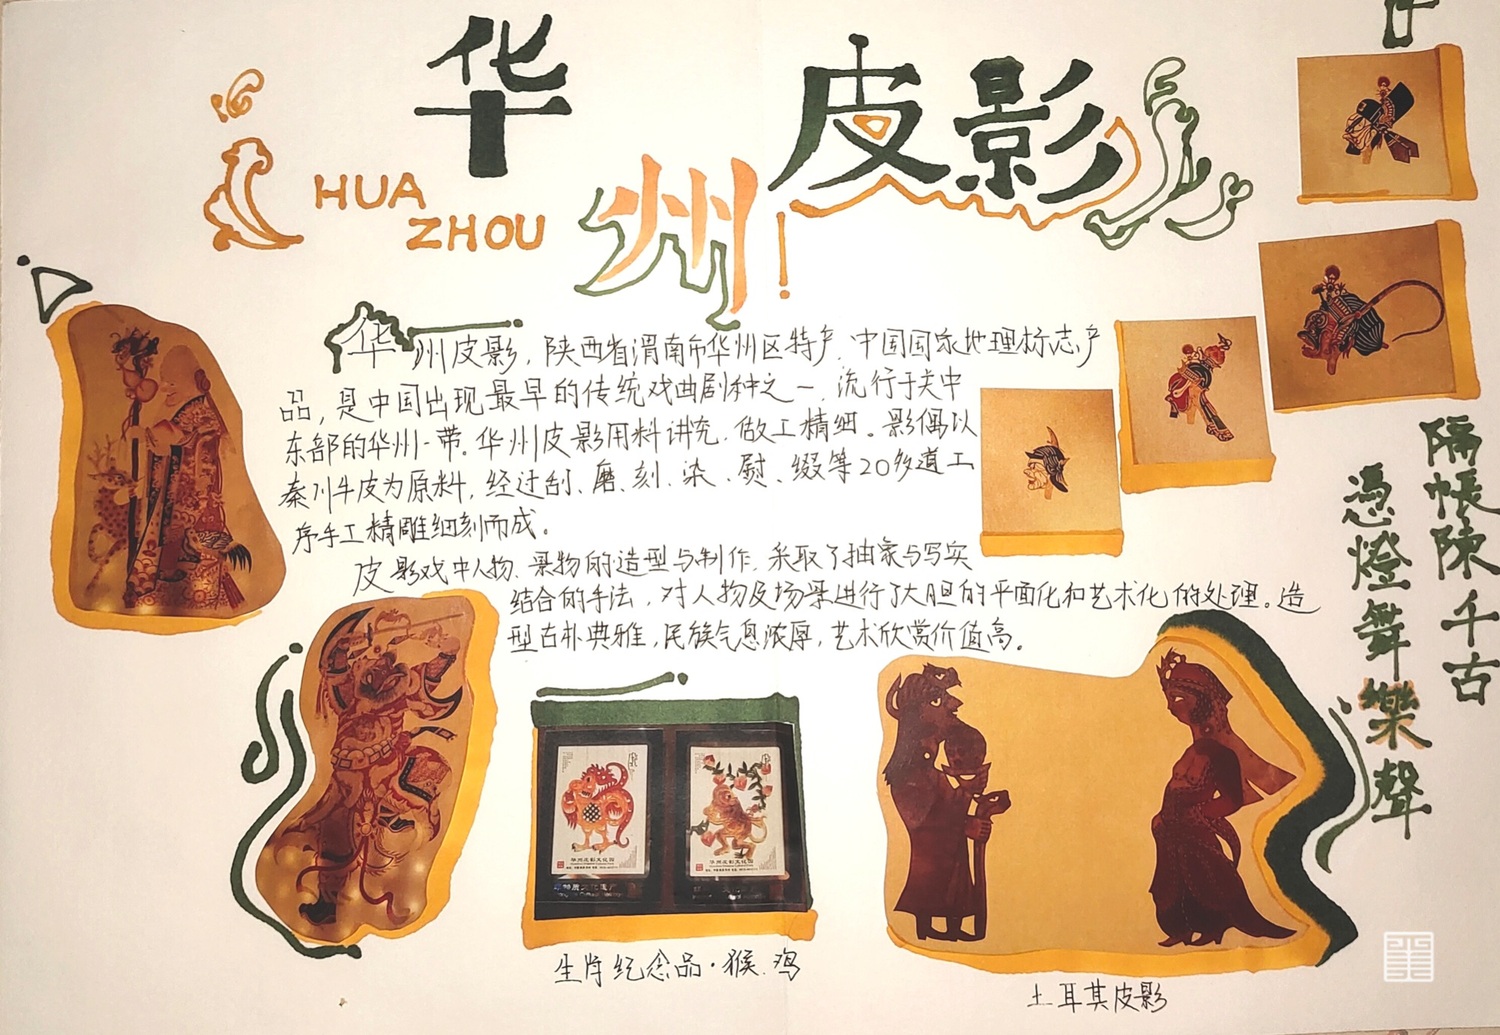 华州皮影!
HUA
ZHOU
华州皮影，陕西省渭南市华州区特产，中国国家地理标志产
品，是中国出现最早的传统戏曲剧种之一，流行于关中
东部的华州一带。华州皮影用料讲究，做工精细。影偶以
秦川牛皮为原料，经过刮、磨、刻、染、熨、缀等20多道工
序手工精雕细刻而成。
皮影戏中人物、景物的造型与制作，采取了抽象与写实
结合的手法，对人物及场景进行了大胆的平面化和艺术化的处理。造
型古朴典雅，民族气息浓厚，艺术欣赏价值高。
隔帳陳千古
憑燈舞樂聲
华州皮影文化园
华州皮影文化园
生肖纪念品·猴、鸡
土耳其皮影